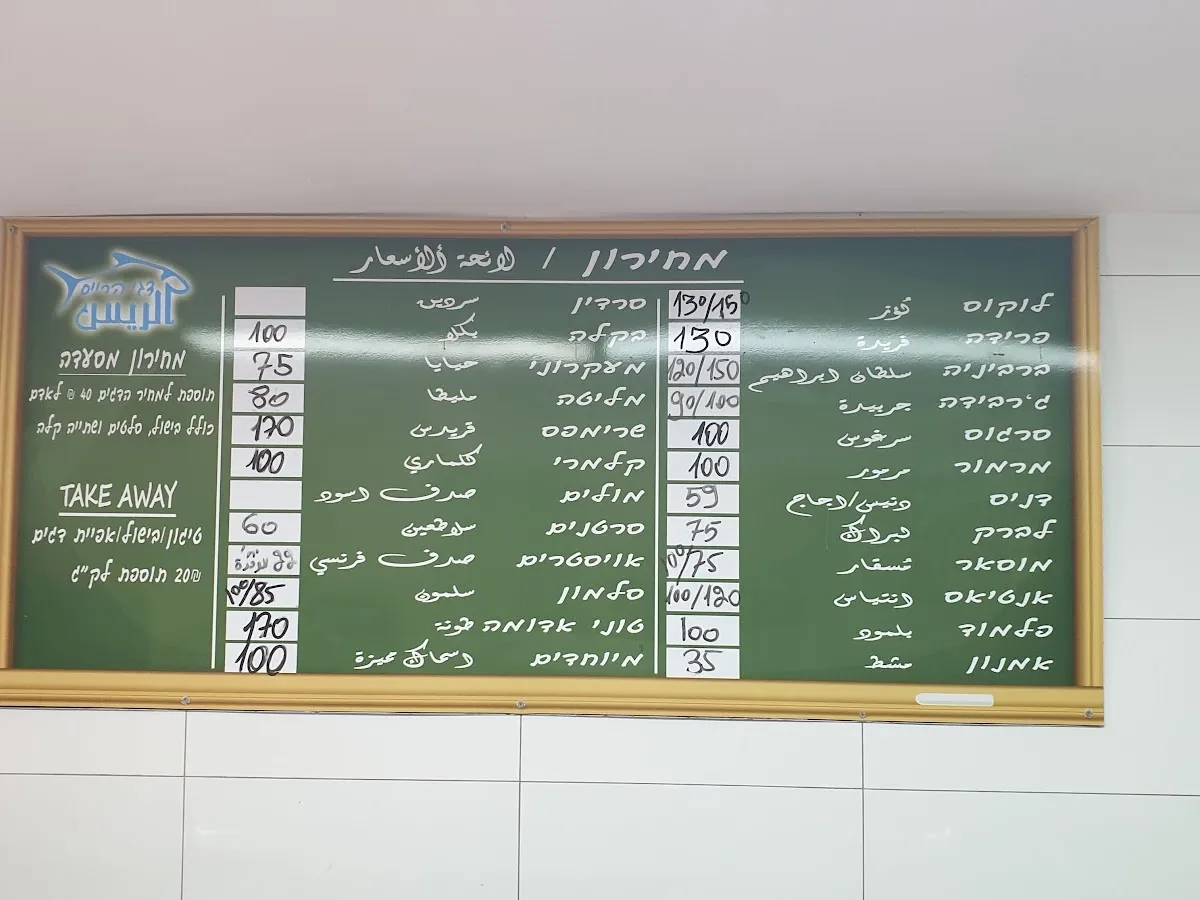 מחירון / لائحة ألأسعار
לוקוס لوكز 130/150
פרידה فريدة 130
ברביניה سلطان ابراهيم 120/150
ג׳רבידה جربيدة 90/100
סרגוס سرغوس 100
מרמור مرمور 100
דניס دنيس/دجاج 59
לברק لبراك 75
מוסאר مسقار 100/75
אנטיאס انتياس 100/120
פלמוד بلمود 100
אמנון مشط 35
סרדין سردين
בקלה بكله 100
מעקרוני حيايا 75
מליטה مليطا 80
שרימפס قريدس 170
קלמרי كلماري 100
מולים صدف اسود
סרטנים سلاطعين 60
אויסטרים صدف فرنسي
סלמון سلمون 100/85
טוני אדומה طونة 170
מיוחדים اسماك مميزة 100
דגי הרייס
الريس
מחירון מסעדה
תוספת למחיר הדגים 40 ₪ לאדם
כולל בישול, סלטים ושתייה קלה
TAKE AWAY
טיגון/בישול/אפיית דגים
20₪ תוספת לק"ג